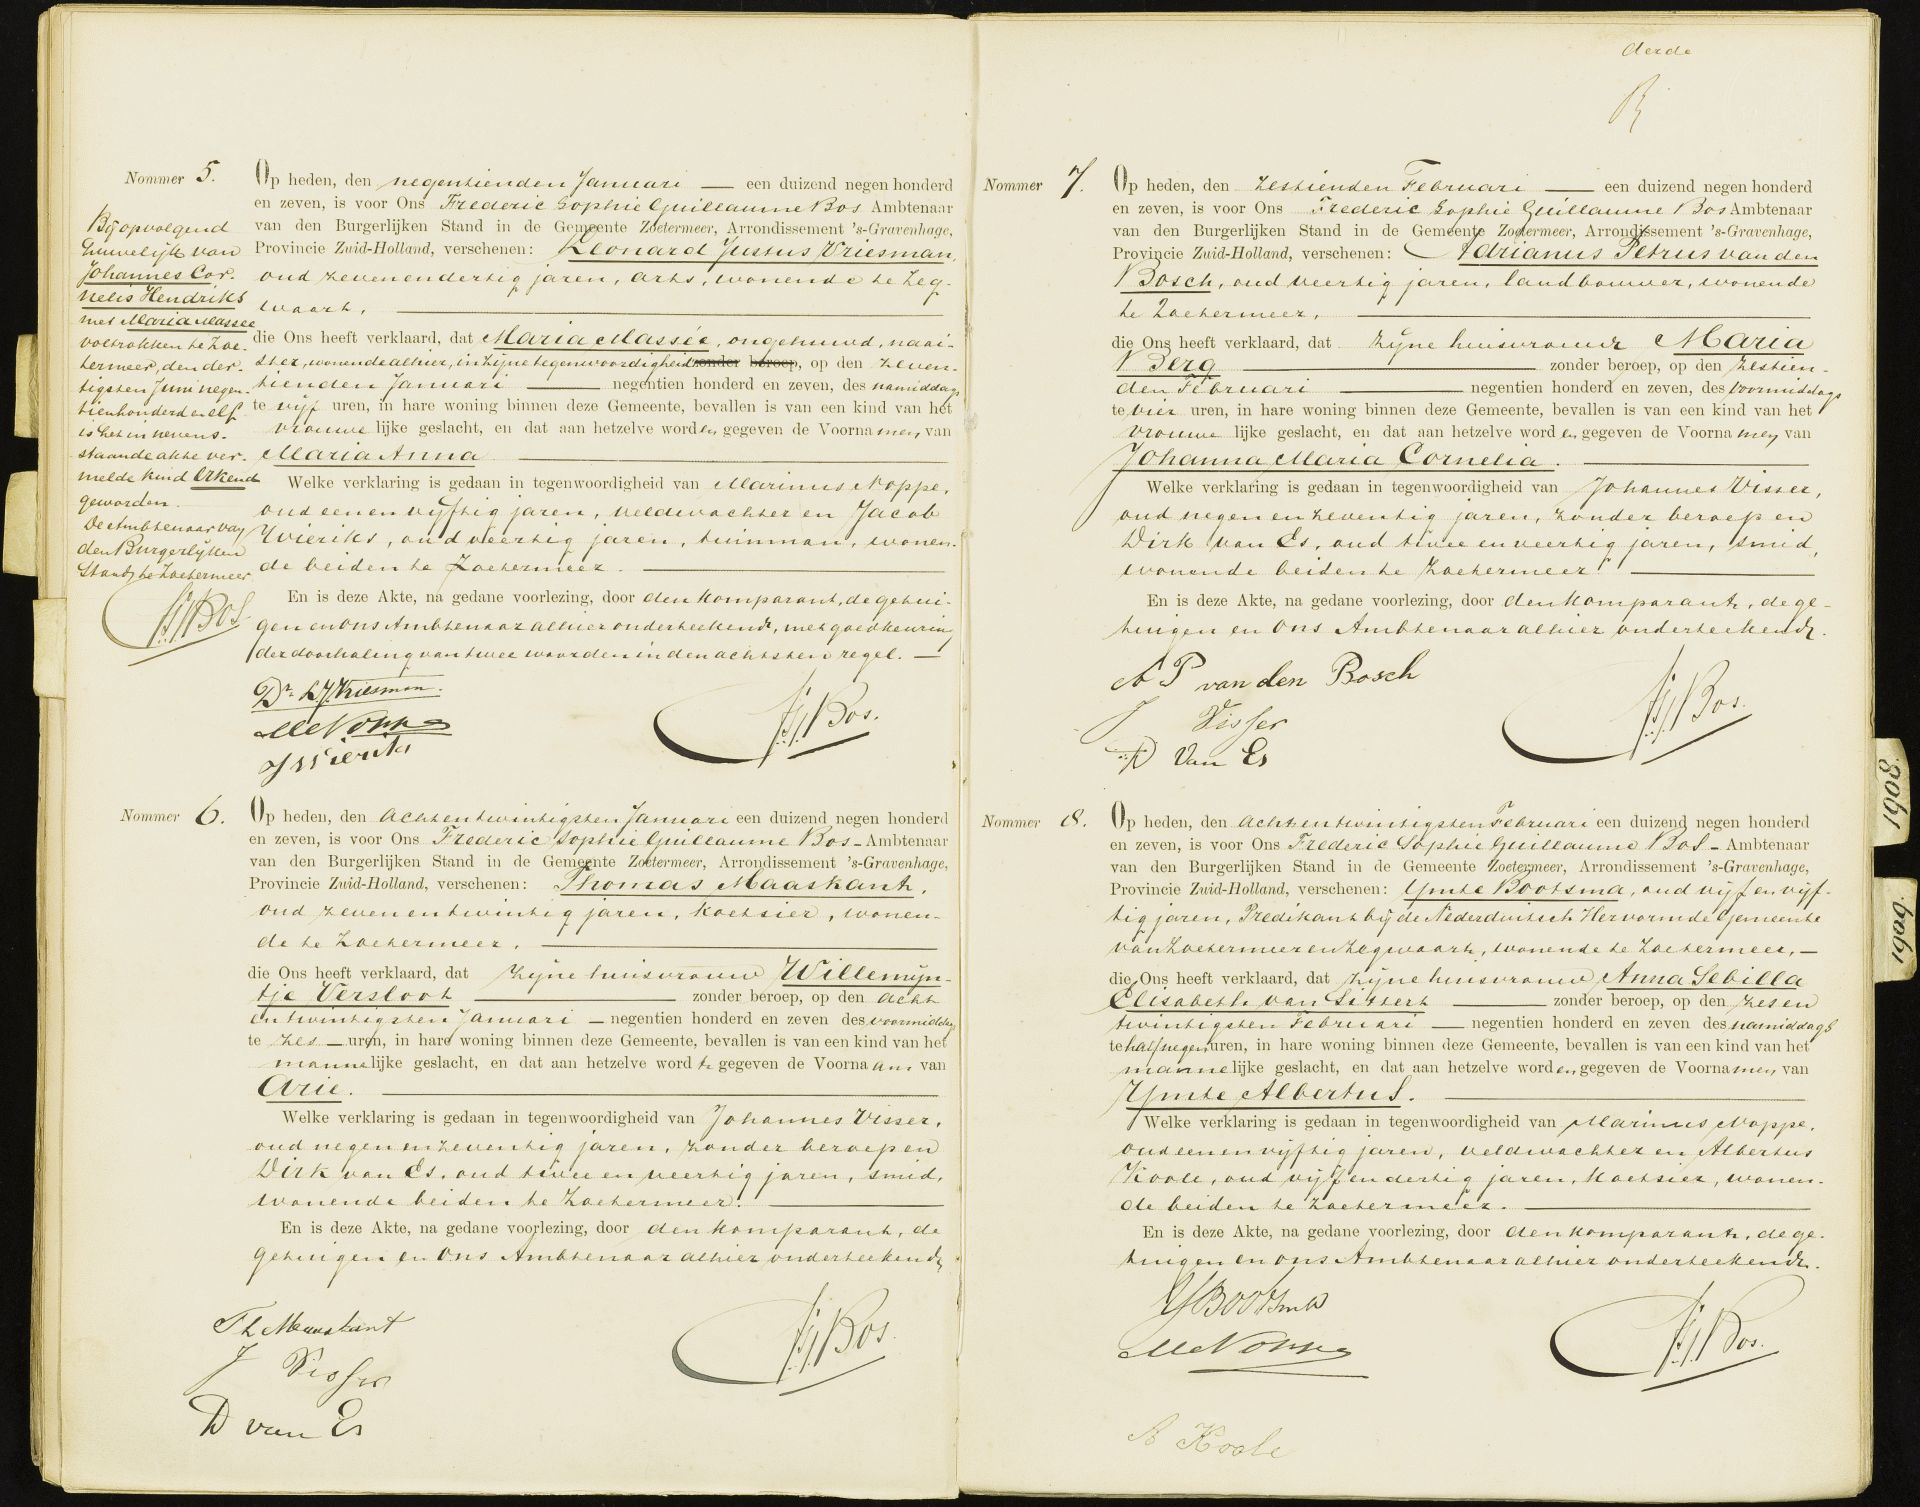 Nommer 5.
Op heden, den negentienden Januari — een duizend negen honderd
en zeven, is voor Ons Frederic Sophie Guillaume Bos Ambtenaar
van den Burgerlijken Stand in de Gemeente Zoetermeer, Arrondissement 's-Gravenhage,
Provincie Zuid-Holland, verschenen: Leonard Justus Vriesman,
oud zevenendertig jaren, arts, wonende te Zeg-
waart,
die Ons heeft verklaard, dat Maria Massée, ongehuwd, naai-
ster, wonende alhier, in zijne tegenwoordigheid zonder beroep, op den zeven-
tienden Januari — negentien honderd en zeven, des namiddags
te vijf uren, in hare woning binnen deze Gemeente, bevallen is van een kind van het
vrouwelijke geslacht, en dat aan hetzelve worden gegeven de Voornamen van
Maria Anna
Welke verklaring is gedaan in tegenwoordigheid van Marinus Noppe,
oud eenenvijftig jaren, veldwachter en Jacob
Wieriks, oud veertig jaren, tuinman, wonen-
de beiden te Zoetermeer.
En is deze Akte, na gedane voorlezing, door den komparant, de getui-
gen en ons Ambtenaar alhier onderteekend, met goedkeuring
der doorhaling van twee woorden in den achtsten regel. —
Dr. L.J. Vriesman.
M Noppe
J Wieriks
F.S.G. Bos.
Bij opvolgend
huwelijk van
Johannes Cor-
nelis Hendriks
met Maria Massee
voltrokken te Zoe-
termeer, den der-
tigsten Juni negen-
tienhonderd en elf
is het in nevens-
staande akte ver-
melde kind Erkend
geworden.
De Ambtenaar van
den Burgerlijken
Stand te Zoetermeer
F.S.G. Bos
Nommer 6.
Op heden, den achtentwintigsten Januari een duizend negen honderd
en zeven, is voor Ons Frederic Sophie Guillaume Bos — Ambtenaar
van den Burgerlijken Stand in de Gemeente Zoetermeer, Arrondissement 's-Gravenhage,
Provincie Zuid-Holland, verschenen: Thomas Maaskant,
oud zevenentwintig jaren, koetsier, wonen-
de te Zoetermeer,
die Ons heeft verklaard, dat zijne huisvrouw Willemijn-
tje Versloot — zonder beroep, op den acht
entwintigsten Januari — negentien honderd en zeven des voormiddags
te zes — uren, in hare woning binnen deze Gemeente, bevallen is van een kind van het
mannelijke geslacht, en dat aan hetzelve wordt gegeven de Voornaam van
Arie.
Welke verklaring is gedaan in tegenwoordigheid van Johannes Visser,
oud negenenzeventig jaren, zonder beroep en
Dirk van Es, oud tweeenveertig jaren, smid,
wonende beiden te Zoetermeer.
En is deze Akte, na gedane voorlezing, door den komparant, de
getuigen en Ons Ambtenaar alhier onderteekend.
Th Maaskant
J Visser
D van Es
F.S.G. Bos.
derde
Nommer 7.
Op heden, den zestienden Februari — een duizend negen honderd
en zeven, is voor Ons Frederic Sophie Guillaume Bos Ambtenaar
van den Burgerlijken Stand in de Gemeente Zoetermeer, Arrondissement 's-Gravenhage,
Provincie Zuid-Holland, verschenen: Adrianus Petrus van den
Bosch, oud veertig jaren, landbouwer, wonende
te Zoetermeer,
die Ons heeft verklaard, dat zijne huisvrouw Maria
Berg — zonder beroep, op den zestien-
den Februari — negentien honderd en zeven, des voormiddags
te vier uren, in hare woning binnen deze Gemeente, bevallen is van een kind van het
vrouwelijke geslacht, en dat aan hetzelve worden gegeven de Voornamen van
Johanna Maria Cornelia.
Welke verklaring is gedaan in tegenwoordigheid van Johannes Visser,
oud negenenzeventig jaren, zonder beroep en
Dirk van Es, oud tweeenveertig jaren, smid,
wonende beiden te Zoetermeer.
En is deze Akte, na gedane voorlezing, door den komparant, de ge-
tuigen en Ons Ambtenaar alhier onderteekend.
A P van den Bosch
J Visser
D Van Es
F.S.G. Bos.
Nommer 8.
Op heden, den achtentwintigsten Februari een duizend negen honderd
en zeven, is voor Ons Frederic Sophie Guillaume Bos — Ambtenaar
van den Burgerlijken Stand in de Gemeente Zoetermeer, Arrondissement 's-Gravenhage,
Provincie Zuid-Holland, verschenen: Ymte Bootsma, oud vijfenvijf-
tig jaren, Predikant bij de Nederduitsch Hervormde Gemeente
van Zoetermeer en Zegwaart, wonende te Zoetermeer, —
die Ons heeft verklaard, dat zijne huisvrouw Anna Sebilla
Elisabeth van Sittert — zonder beroep, op den zesen
twintigsten Februari — negentien honderd en zeven des namiddags
te half negen uren, in hare woning binnen deze Gemeente, bevallen is van een kind van het
mannelijke geslacht, en dat aan hetzelve worden gegeven de Voornamen van
Ymte Albertus.
Welke verklaring is gedaan in tegenwoordigheid van Marinus Noppe,
oud eenenvijftig jaren, veldwachter en Albertus
Koole, oud vijfendertig jaren, koetsier, wonen-
de beiden te Zoetermeer.
En is deze Akte, na gedane voorlezing, door den komparant, de ge-
tuigen en ons Ambtenaar alhier onderteekend.
Y Bootsma
M Noppe
A Koole
F.S.G. Bos.
1908.
1909.